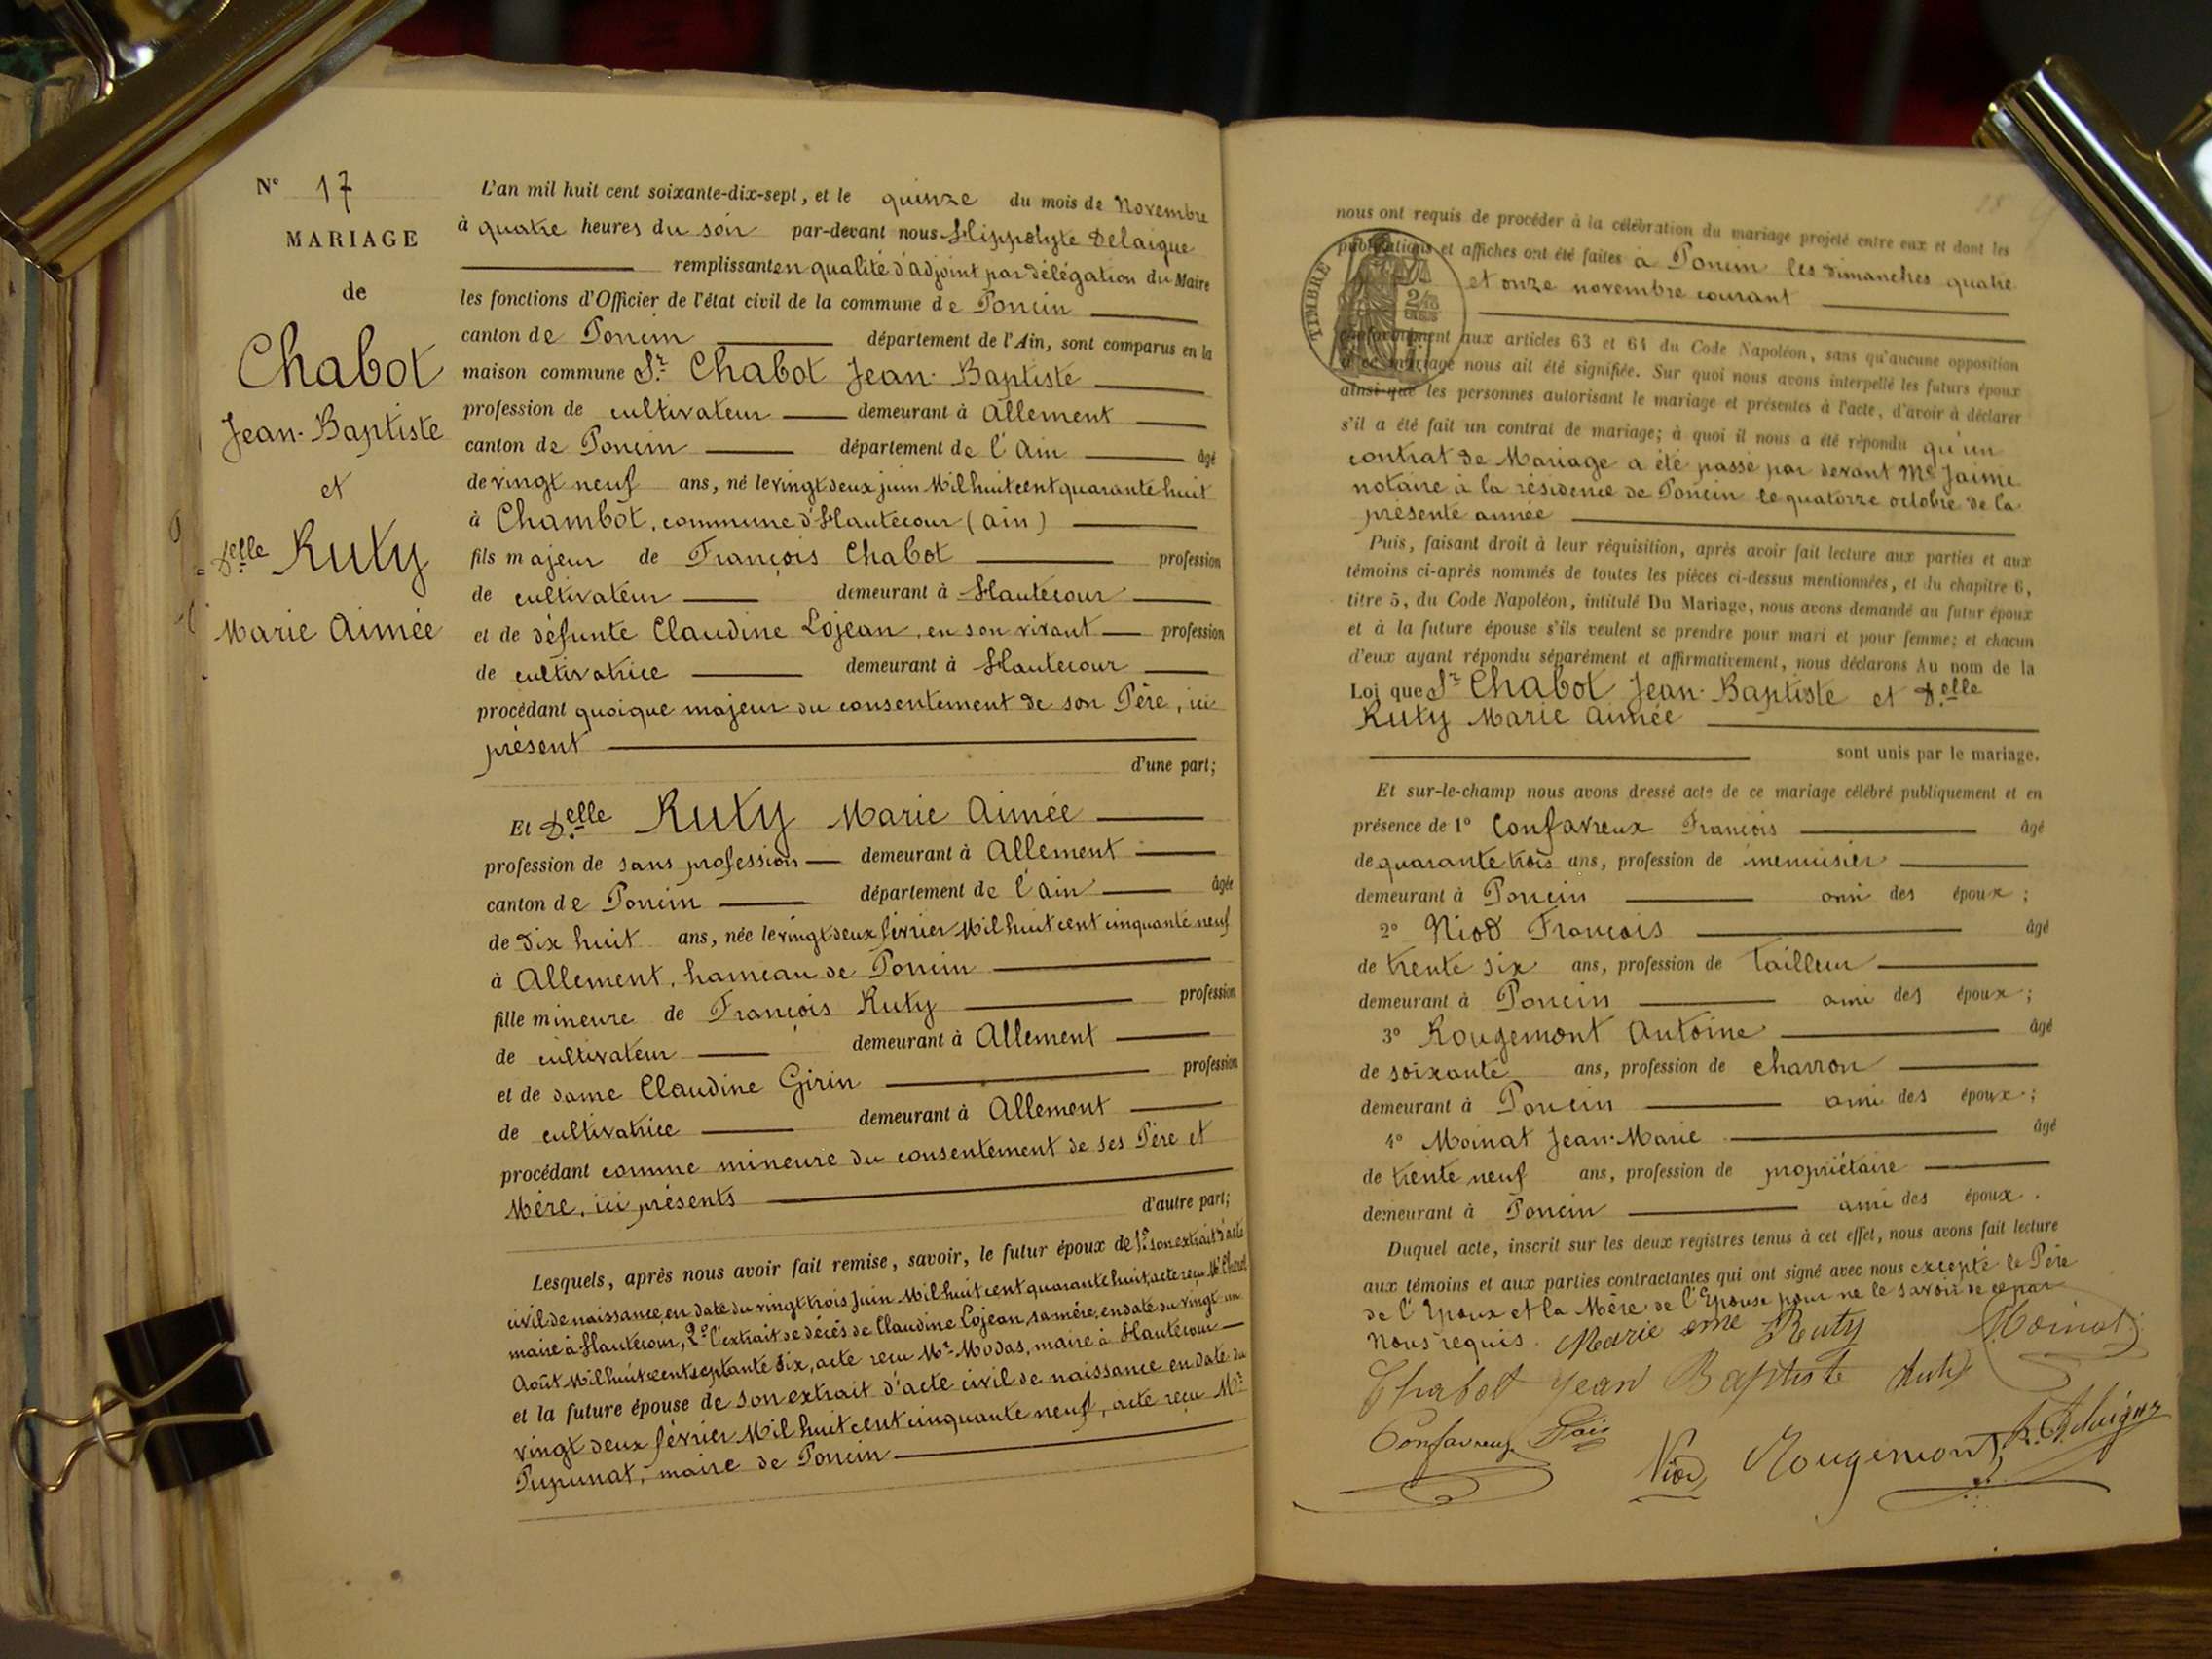 N° 17
MARIAGE
de
Chabot
Jean-Baptiste
et
Delle Ruty
Marie Aimée
L'an mil huit cent soixante-dix-sept, et le quinze du mois de Novembre
à quatre heures du soir par-devant nous Hippolyte Delaigue
remplissant en qualité d'adjoint par délégation du Maire
les fonctions d'Officier de l'état civil de la commune de Poncin
canton de Poncin département de l'Ain, sont comparus en la
maison commune Sr. Chabot Jean-Baptiste
profession de cultivateur demeurant à Allement
canton de Poncin département de l'Ain âgé
de vingt neuf ans, né le vingt deux juin Mil huit cent quarante huit
à Chambôt, commune d'Hautecour (Ain)
fils majeur de François Chabot profession
de cultivateur demeurant à Hautecour
et de défunte Claudine Lojean, en son vivant profession
de cultivatrice demeurant à Hautecour
procédant quoique majeur du consentement de son Père, ici
présent
d'une part;
Et Delle Ruty Marie Aimée
profession de sans profession demeurant à Allement
canton de Poncin département de l'Ain âgée
de dix huit ans, née le vingt deux février Mil huit cent cinquante neuf
à Allement, hameau de Poncin
fille mineure de François Ruty profession
de cultivateur demeurant à Allement
et de dame Claudine Girin profession
de cultivatrice demeurant à Allement
procédant comme mineure du consentement de ses Père et
Mère, ici présents
d'autre part;
Lesquels, après nous avoir fait remise, savoir, le futur époux de 1° son extrait d'acte
civil de naissance, en date du vingt trois Juin Mil huit cent quarante huit, acte reçu Mr.
maire à Hautecour, 2° l'extrait de décès de Claudine Lojean, sa mère, en date du vingt un
Août Mil huit cent septante six, acte reçu Mr. Modas, maire à Hautecour
et la future épouse de son extrait d'acte civil de naissance en date du
vingt deux février Mil huit cent cinquante neuf, acte reçu Mr.
Pupunat, maire de Poncin
nous ont requis de procéder à la célébration du mariage projeté entre eux et dont les
publications et affiches ont été faites à Poncin les dimanches quatre
et onze novembre courant
TIMBRE
conformément aux articles 63 et 64 du Code Napoléon, sans qu'aucune opposition
à ce mariage nous ait été signifiée. Sur quoi nous avons interpellé les futurs époux
ainsi que les personnes autorisant le mariage et présentes à l'acte, d'avoir à déclarer
s'il a été fait un contrat de mariage; à quoi il nous a été répondu qu'un
contrat de Mariage a été passé par devant Me Jaime
notaire à la résidence de Poncin le quatorze octobre de la
présente année
Puis, faisant droit à leur réquisition, après avoir fait lecture aux parties et aux
témoins ci-après nommés de toutes les pièces ci-dessus mentionnées, et du chapitre 6,
titre 5, du Code Napoléon, intitulé Du Mariage, nous avons demandé au futur époux
et à la future épouse s'ils veulent se prendre pour mari et pour femme; et chacun
d'eux ayant répondu séparément et affirmativement, nous déclarons Au nom de la
Loi que Sr. Chabot Jean-Baptiste et Delle
Ruty Marie Aimée
sont unis par le mariage.
Et sur-le-champ nous avons dressé acte de ce mariage célébré publiquement et en
présence de 1° Confavreux François âgé
de quarante trois ans, profession de menuisier
demeurant à Poncin ami des époux;
2° Niod François âgé
de trente six ans, profession de tailleur
demeurant à Poncin ami des époux;
3° Rougemont Antoine âgé
de soixante ans, profession de charron
demeurant à Poncin ami des époux;
4° Moinat Jean-Marie âgé
de trente neuf ans, profession de propriétaire
demeurant à Poncin ami des époux.
Duquel acte, inscrit sur les deux registres tenus à cet effet, nous avons fait lecture
aux témoins et aux parties contractantes qui ont signé avec nous excepté le Père
de l'Epoux et la Mère de l'Epouse pour ne le savoir de ce par
Nous requis. Marie eme Ruty Moinat
Chabot Jean Baptiste Ruty
Confavreux Niod Rougemont H. Delaigue